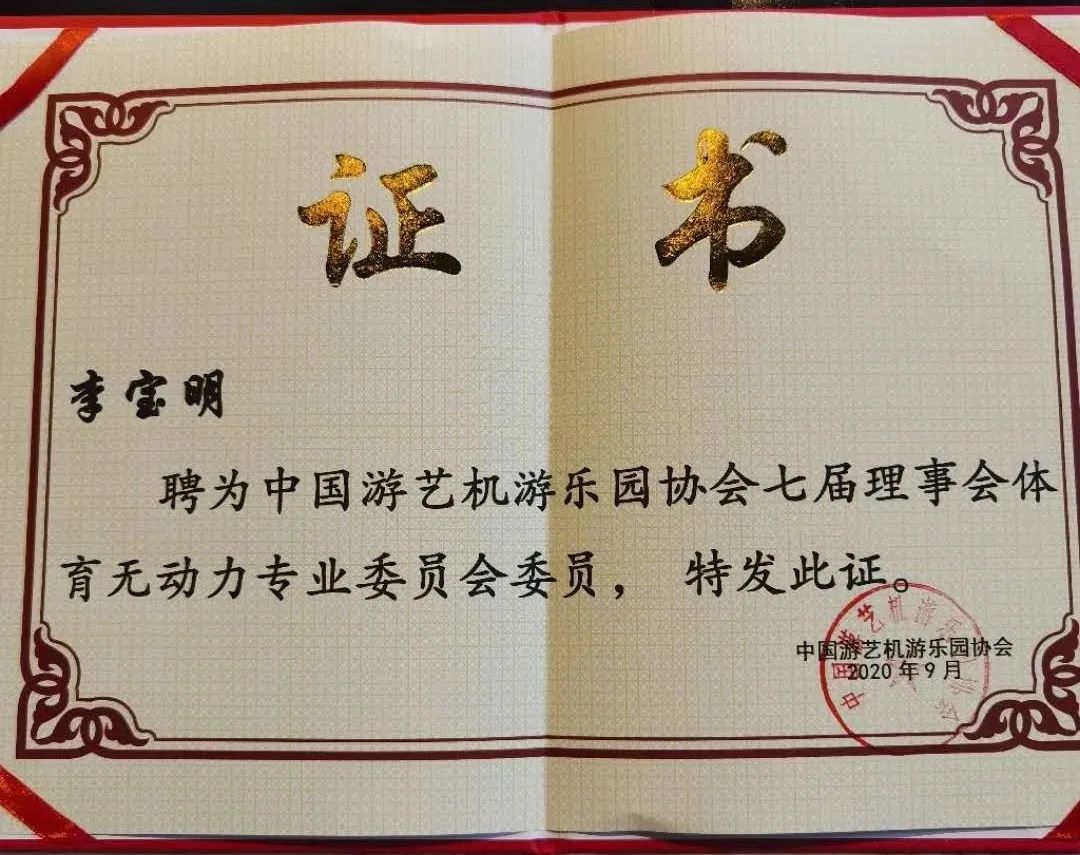 证书
李宝明
聘为中国游艺机游乐园协会七届理事会体
育无动力专业委员会委员， 特发此证。
中国游艺机游乐园协会
2020年9月
中国游艺机游乐园协会